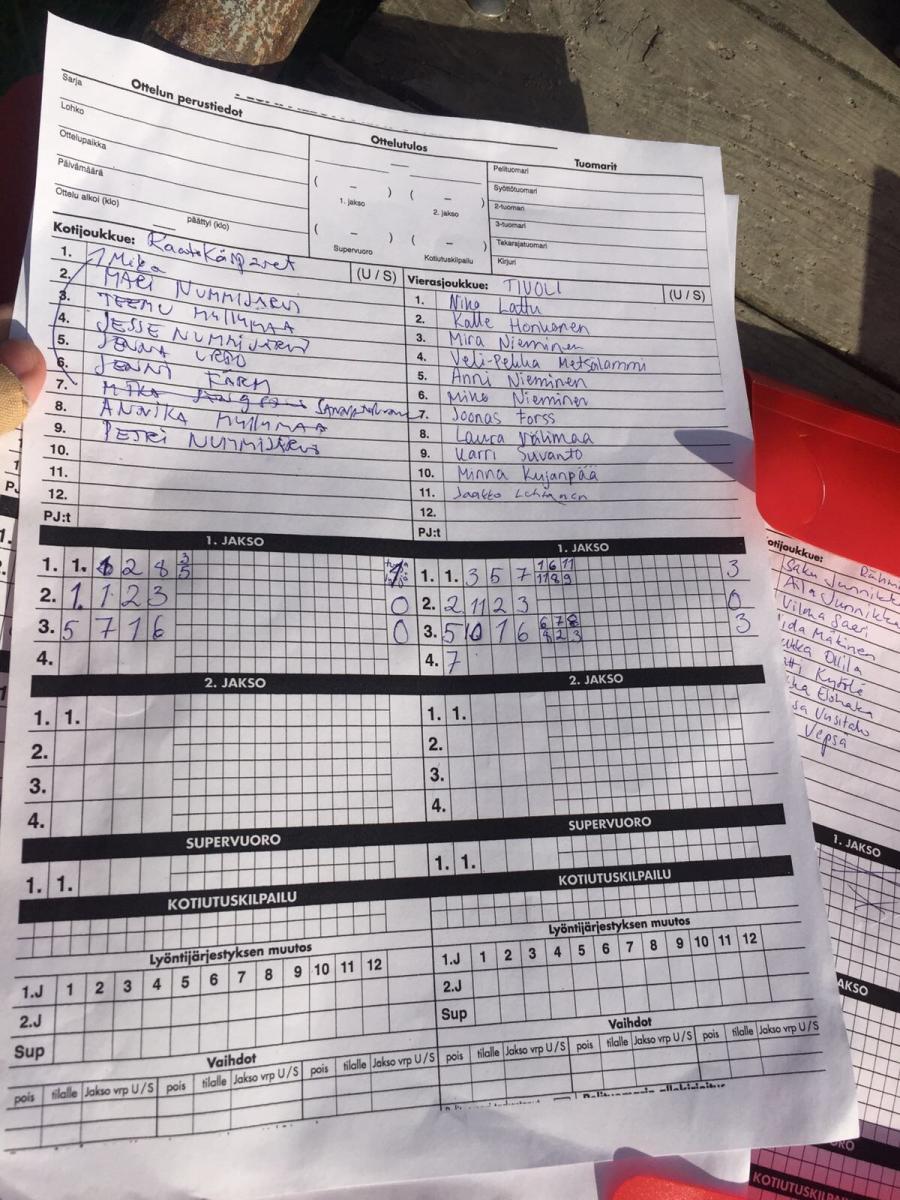 Ottelun perustiedot
Ottelutulos
Tuomarit
Sarja
Lohko
Ottelupaikka
Päivämäärä
Ottelu alkoi (klo) päättyi (klo)
( – ) ( – )
1. jakso 2. jakso
( – ) ( – )
Supervuoro Kotiutuskilpailu
Pelituomari
Syöttötuomari
2-tuomari
3-tuomari
Takarajatuomari
Kirjuri
Kotijoukkue:
(U / S)
1. Mika
2. MARI NUMMIJÄRVI
3. TEEMU MYLLYMAA
4. JESSE NUMMIJÄRVI
5. JENNA URBO
6. JENNI FÄRM
7.
8. ANNIKA MYLLYMAA
9. PETRI NUMMIJÄRVI
10.
11.
12.
PJ:t
Vierasjoukkue: TIVOLI (U / S)
1. Niko Lattu
2. Kalle Honkanen
3. Mira Nieminen
4. Veli-Pekka Metsälammi
5. Anni Nieminen
6. Mika Nieminen
7. Joonas Forss
8. Laura Välimaa
9. Karri Suvanto
10. Minna Kujanpää
11. Jaakko Lehtinen
12.
PJ:t
1. JAKSO
1. 1. 6 2 8 3/5
2. 1. 1 2 3 0
3. 5 7 1 6 0
4.
1. JAKSO
1. 1. 3 5 7 1 6 11 3
11 8 9
2. 2 11 2 3 0
3. 5 10 1 6 6 7 8 3
8 2 3
4. 7
2. JAKSO
1. 1.
2.
3.
4.
2. JAKSO
1. 1.
2.
3.
4.
SUPERVUORO
1. 1.
SUPERVUORO
1. 1.
KOTIUTUSKILPAILU
KOTIUTUSKILPAILU
Lyöntijärjestyksen muutos
1.J 1 2 3 4 5 6 7 8 9 10 11 12
2.J
Sup
Lyöntijärjestyksen muutos
1.J 1 2 3 4 5 6 7 8 9 10 11 12
2.J
Sup
Vaihdot
pois tilalle Jakso vrp U / S pois tilalle Jakso vrp U / S pois tilalle Jakso vrp U / S
Vaihdot
pois tilalle Jakso vrp U / S pois tilalle Jakso vrp U / S pois tilalle Jakso vrp U / S
Pelituomarin allekirjoitus
otijoukkue:
Saku Junnikk
Aila Junnikka
Vilma Saari
ida Mäkinen
Ollila
Vepsä
1. JAKSO
AKSO
ORO
KOTIUTUSKILPAI